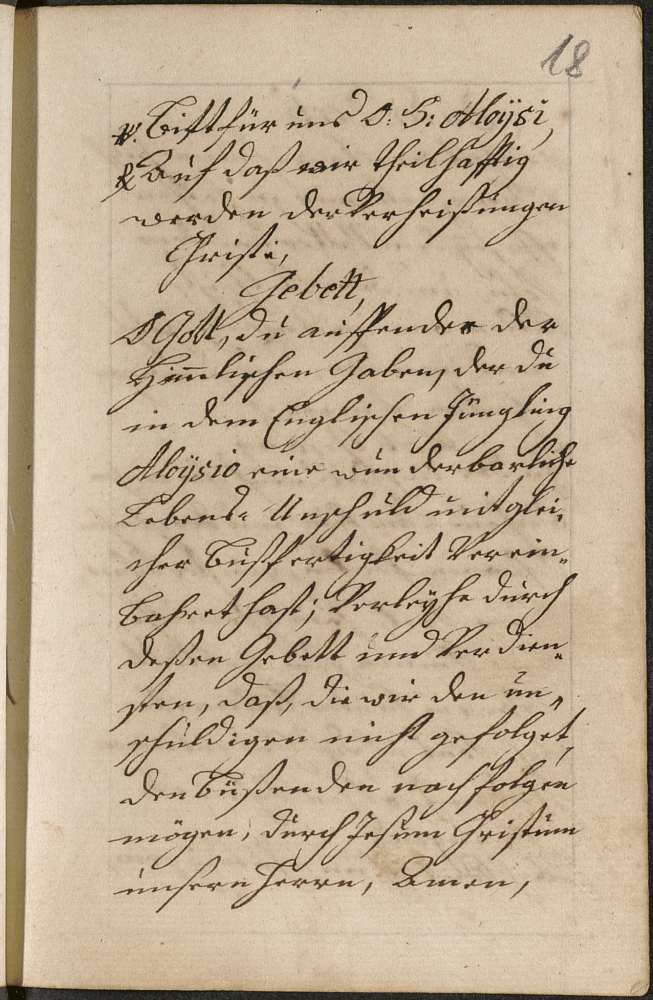 18
℣. Bitt für uns O: H: Aloÿsi,
℟ Auf daß wir theilhafftig
werden der Verheißungen
Christi,
Gebett,
O Gott, du ausspender der
Himmlischen Gaben, der du
in dem Englischen Jüngling
Aloÿsio eine wunderbarliche
Lebens-Unschuld mit glei-
cher Bußfertigkeit Verein-
bahret hast; Verleÿhe durch
deßen Gebett und Verdien-
sten, daß, die wir den un-
schuldigen nicht gefolget,
den büßenden nachfolgen
mögen, durch Jesum Christum
unsern Herrn, Amen,